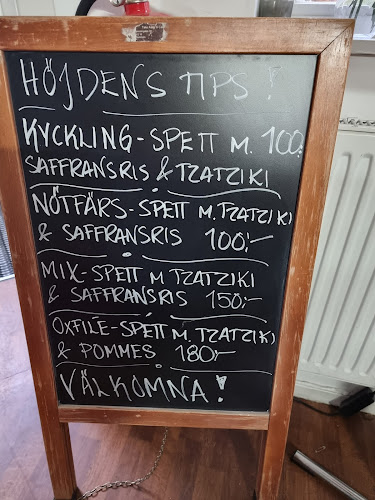 HÖJDENS TIPS!
KYCKLING-SPETT M. 100:-
SAFFRANSRIS & TZATZIKI
NÖTFÄRS-SPETT M. TZATZIKI
& SAFFRANSRIS 100:-
MIX-SPETT M TZATZIKI
& SAFFRANSRIS 150:-
OXFILE-SPETT M. TZATZIKI
& POMMES 180:-
VÄLKOMNA!